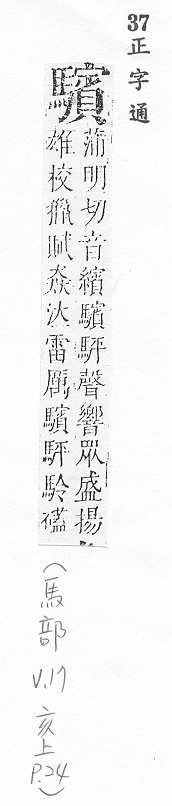 37正字通
驞
蒲明切音繽驞駍聲響眾盛揚
雄校獵賦猋泣雷厲驞駍駖磕
(馬部
V.17
亥上
P.24)